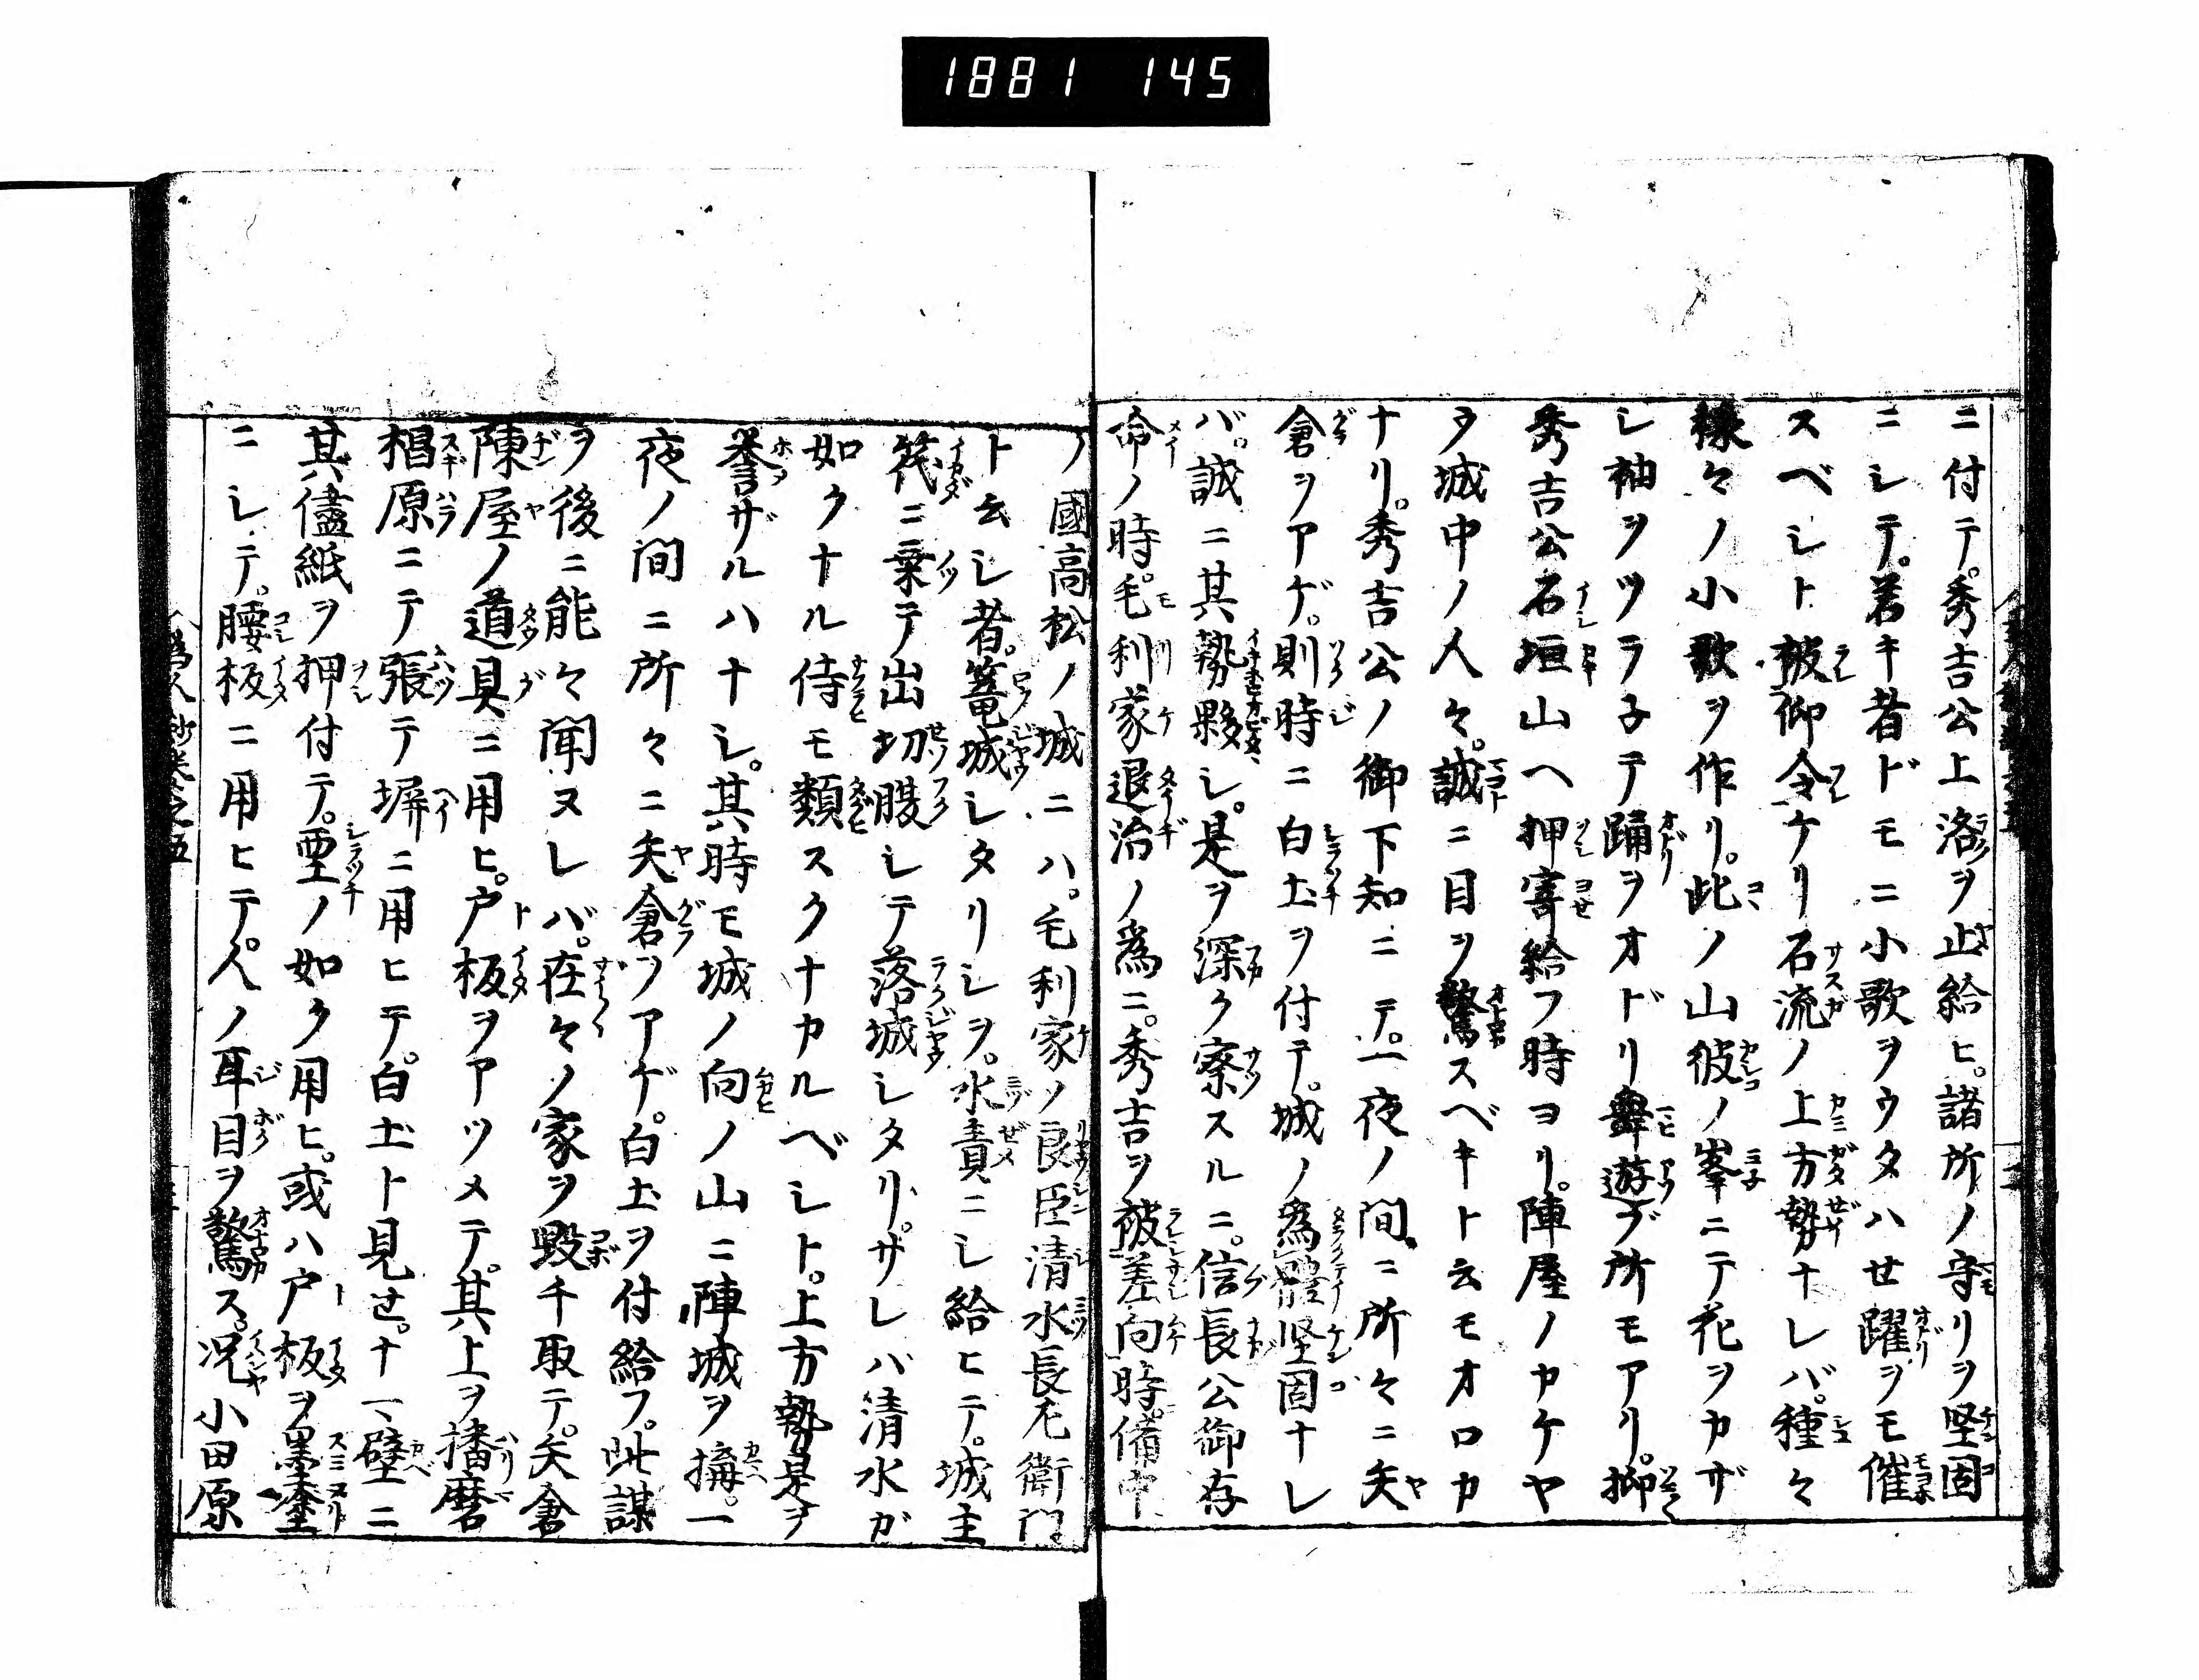 1881 145
ニ付テ。秀吉公上洛ヲ止給ヒ。諸所ノ守リヲ堅固
ニシテ。若キ者ドモニ小歌ヲウタハせ躍ヲモ催
スベシト被仰令ケリ石流ノ上方勢ナレバ。種々
様々ノ小歌ヲ作リ。此ノ山彼ノ峯ニテ花ヲカザ
シ袖ヲツラ子テ踊ヲオドリ舞遊ブ所モアリ。抑
秀吉公石垣山ヘ押寄給フ時ヨリ。陣屋ノカケヤ
ウ城中ノ人々。誠ニ目ヲ驚スベキト云モオロカ
ナリ。秀吉公ノ御下知ニテ。一夜ノ間ニ所々ニ矢
倉ヲアゲ。則時ニ白土ヲ付テ。城ノ為體堅固ナレ
バ。誠ニ其勢夥シ。是ヲ深ク察スルニ。信長公御存
命ノ時。毛利家退治ノ為ニ。秀吉ヲ被差向時。備中
ノ國高松ノ城ニハ。毛利家ノ良臣清水長左衛門
ト云シ者。篭城シタリシヲ。水責ニシ給ヒテ。城主
筏ニ乗テ出切腹シテ落城シタリ。サレバ清水ガ
如クナル侍モ類スクナカルベシト。上方勢是ヲ
誉ザルハナシ。其時モ城ノ向ノ山ニ陣城ヲ搆。一
夜ノ間ニ所々ニ矢倉ヲアゲ。白土ヲ付給フ。此謀
ヲ後ニ能々聞ヌレバ。在々ノ家ヲ毀チ取テ。矢倉
陳屋ノ道具ニ用ヒ。戸板ヲアツメテ。其上ヲ播磨
椙原ニテ張テ塀ニ用ヒテ。白土ト見せ。ナマ壁ニ
其儘紙ヲ押付テ。堊ノ如ク用ヒ。或ハ戸板ヲ墨塗
ニシテ。腰板ニ用ヒテ。人ノ耳目ヲ驚ス。况小田原